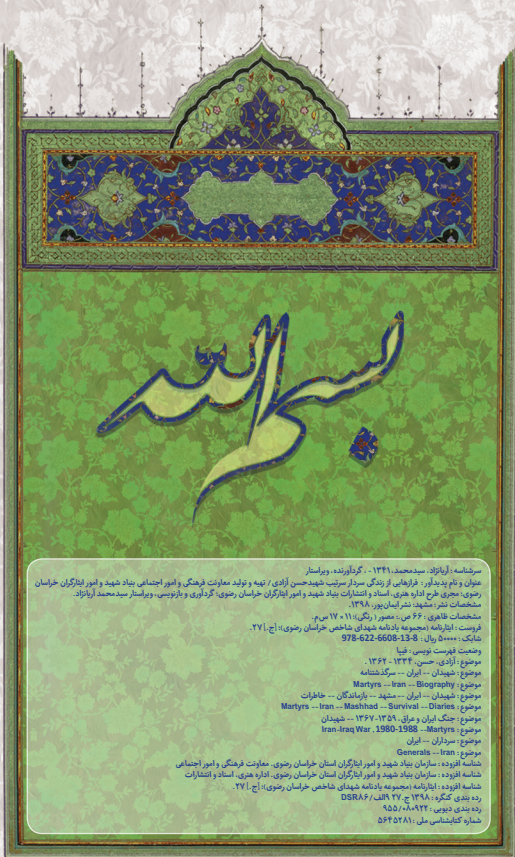 بسم الله
سرشناسه : آریانژاد، سیدمحمد، ۱۳۴۱ - ، گردآورنده، ویراستار
عنوان و نام پدیدآور : فرازهایی از زندگی سردار سرتیپ شهیدحسن آزادی / تهیه و تولید معاونت فرهنگی و امور اجتماعی بنیاد شهید و امور ایثارگران خراسان
رضوی؛ مجری طرح اداره هنری، اسناد و انتشارات بنیاد شهید و امور ایثارگران خراسان رضوی؛ گردآوری و بازنویسی، ویراستار سیدمحمد آریانژاد.
مشخصات نشر : مشهد: نشر ایمان‌پور، ۱۳۹۸.
مشخصات ظاهری : ۶۶ ص.: مصور ( رنگی)؛ ۱۱ × ۱۷ س‌م.
فروست : ایثارنامه (مجموعه یادنامه شهدای شاخص خراسان رضوی)؛ [ج.] ۲۷.
شابک : ۵۰۰۰۰ ریال : 978-622-6608-13-8
وضعیت فهرست نویسی : فیپا
موضوع : آزادی، حسن، ۱۳۳۴ - ۱۳۶۲ .
موضوع : شهیدان -- ایران -- سرگذشتنامه
موضوع : Martyrs -- Iran -- Biography
موضوع : شهیدان -- ایران -- مشهد -- بازماندگان -- خاطرات
موضوع : Martyrs -- Iran -- Mashhad -- Survival -- Diaries
موضوع : جنگ ایران و عراق، ۱۳۵۹-۱۳۶۷ -- شهیدان
موضوع : Iran-Iraq War , 1980-1988 --Martyrs
موضوع : سرداران -- ایران
موضوع : Generals -- Iran
شناسه افزوده : سازمان بنیاد شهید و امور ایثارگران استان خراسان رضوی، معاونت فرهنگی و امور اجتماعی
شناسه افزوده : سازمان بنیاد شهید و امور ایثارگران استان خراسان رضوی، اداره هنری، اسناد و انتشارات
شناسه افزوده : ایثارنامه (مجموعه یادنامه شهدای شاخص خراسان رضوی)؛ [ج.] ۲۷.
رده بندی کنگره : ۱۳۹۸ ج.۲۷ ۹الف/DSR۸۶
رده بندی دیویی : ۹۵۵/۰۸۰۹۲۲
شماره کتابشناسی ملی : ۵۶۴۵۲۸۱